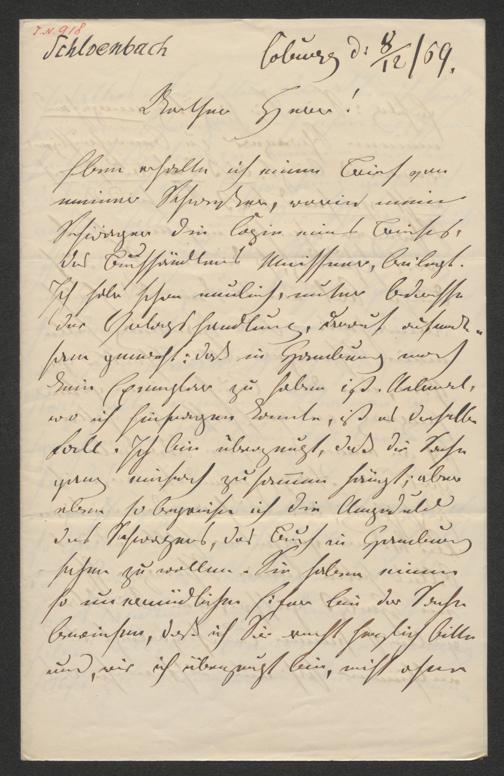 I.N. 918
Schloenbach
Coburg d: 8/12/69.
Werther Herr!
Eben erhalte ich einen Brief von
meiner Schwester, worin mein
Schwager die Copie eines Briefes,
des Buchhändlers Meissner, beilegt.
Ich habe schon neulich, unter Adresse
der Verlagshandlung, darauf aufmerk-
sam gemacht: daß in Hamburg noch
kein Exemplar zu haben ist. Ueberall,
wo ich hinfragen konnte, ist es derselbe
Fall. Ich bin überzeugt, daß die Sache
ganz einfach zusammen hängt; aber
eben so begreife ich die Ungeduld
des Schwagers, das Buch in Hamburg
sehen zu wollen. Sie haben einen
so unermüdlichen Eifer bei der Sache
bewiesen, daß ich Sie recht herzlich bitte
und, wie ich überzeugt bin, nicht ohne